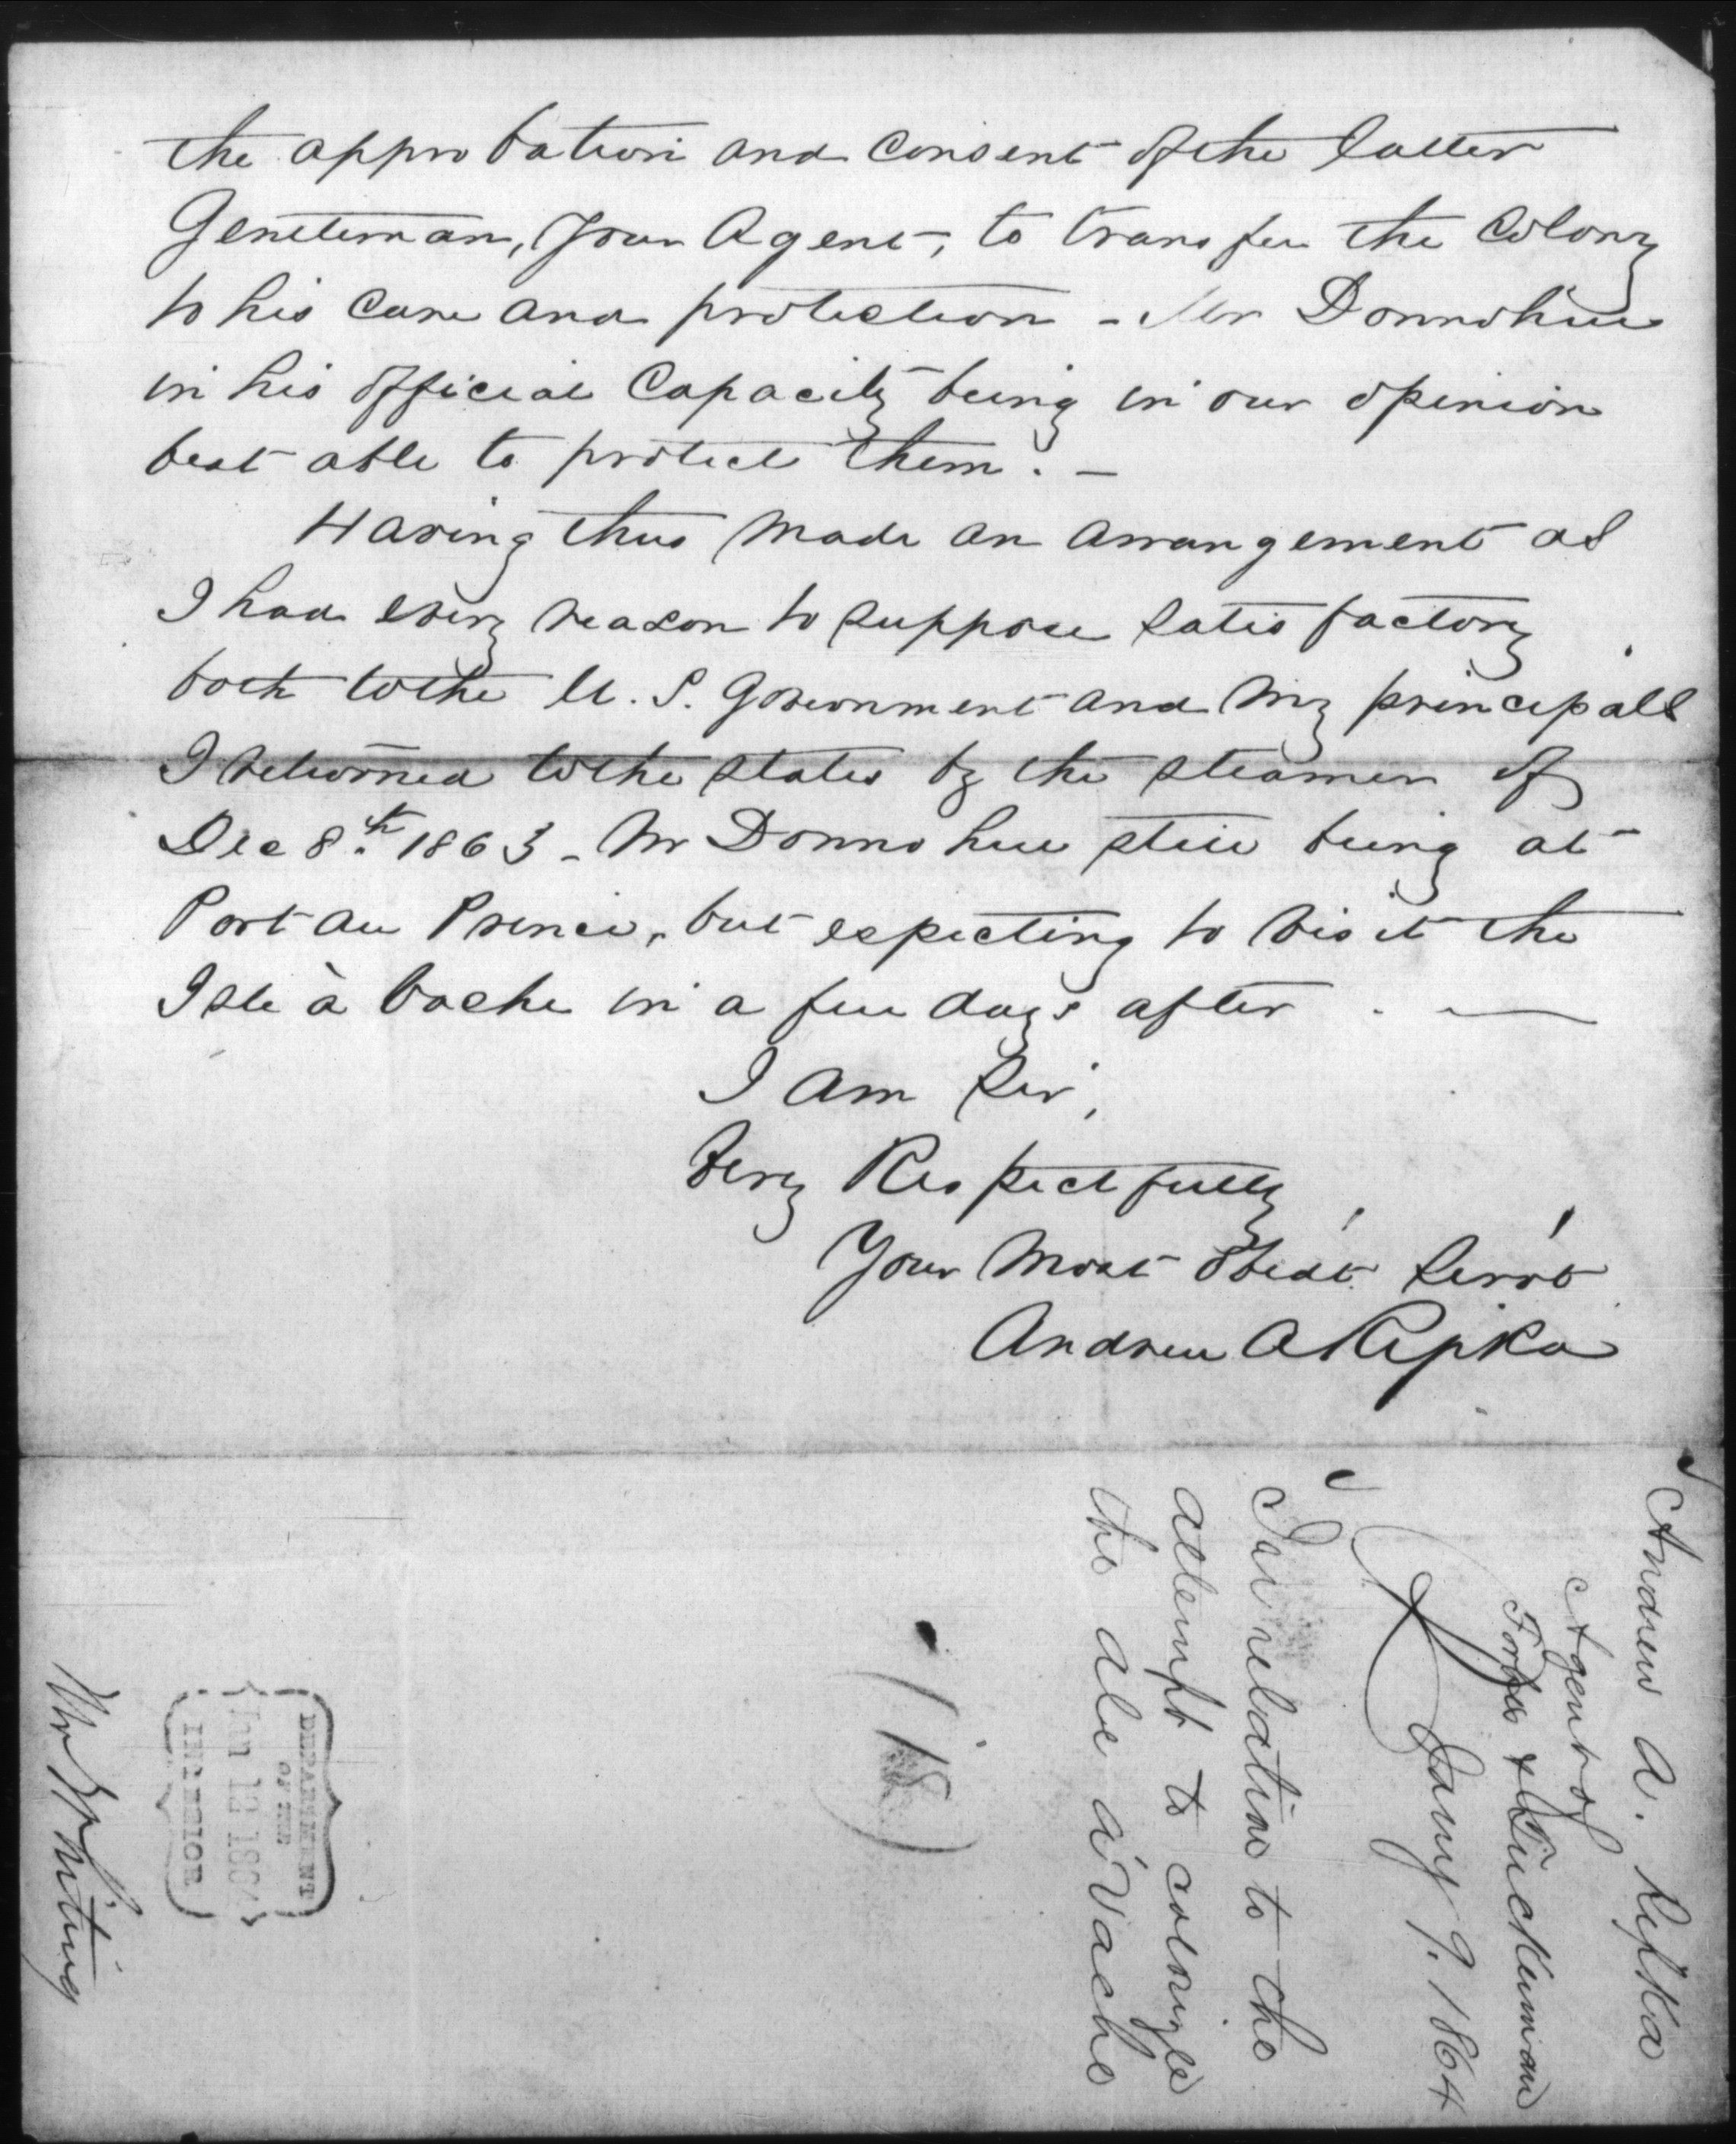 the approbation and consent of the latter
Gentleman, Your Agent, to transfer the Colony
to his care and protection - Mr Donnohue
in his official Capacity being in our opinion
best able to protect them. -
Having thus made an arrangement as
I had every reason to suppose satisfactory
both to the U. S. Government and my principals
I returned to the States by the steamer of
Dec 8th 1863 - Mr Donnohue still being at
Port au Prince, but expecting to visit the
Isle à Vache in a few days after. —
I am Sir,
Very Respectfully,
Your Most Obedt Servt
Andrew A Ripka
Andrew A. Ripka
Agent of
Forbes & Tuckerman
Jany 9. 1864
In relation to the
attempt to colonize
the Ile a'Vache
(18)
DEPARTMENT
OF THE
Jan 12 1864
INTERIOR